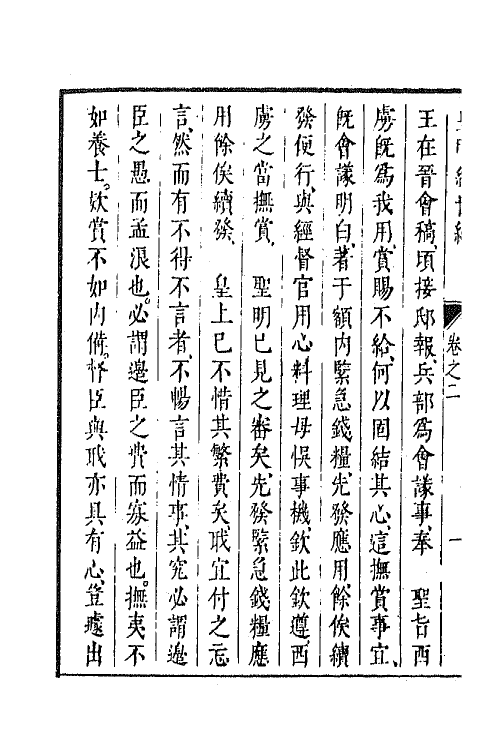 卷之二
一
王在晉會稿、頃接邸報、兵部爲會議事、奉　聖旨西
虜旣爲我用、賞賜不給、何以固結其心、這撫賞事宜、
旣會議明白、著于額内緊急錢糧先發應用、餘俟續
發便行、與經督官用心料理毋悞事機、欽此欽遵、西
虜之當撫賞、　聖明已見之審矣、先發緊急錢糧應
用餘俟續發、　皇上已不惜其繁費矣、職宜付之忘
言、然而有不得不言者、不暢言其情事、其究必謂邊
臣之愚而孟浪也。必謂邊臣之費而寡益也。撫夷不
如養士。欵賞不如内備。怪臣與職亦具有心、豈遽出